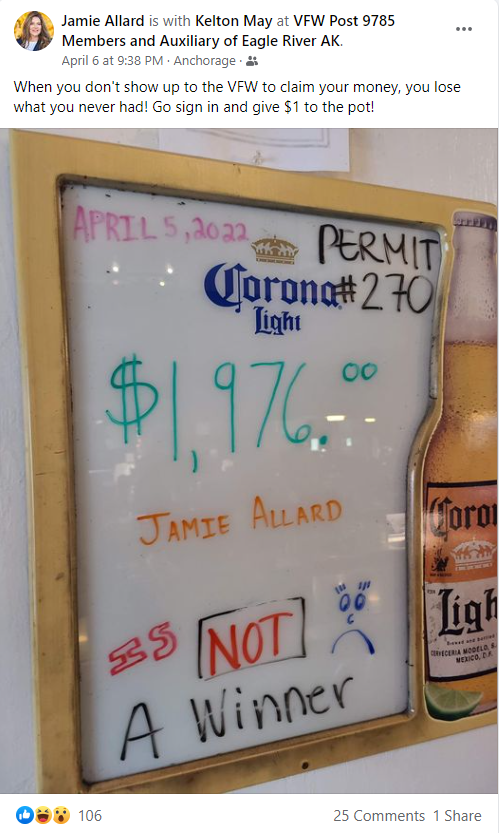 Jamie Allard is with Kelton May at VFW Post 9785
Members and Auxiliary of Eagle River AK.
April 6 at 9:38 PM · Anchorage ·
When you don't show up to the VFW to claim your money, you lose
what you never had! Go sign in and give $1 to the pot!
APRIL 5, 2022
PERMIT
#270
Corona
Light
$1,976.00
JAMIE ALLARD
IS NOT
A Winner
Coron
Ligh
CERVECERIA MODELO, S.
MEXICO, D.F.
106
25 Comments 1 Share